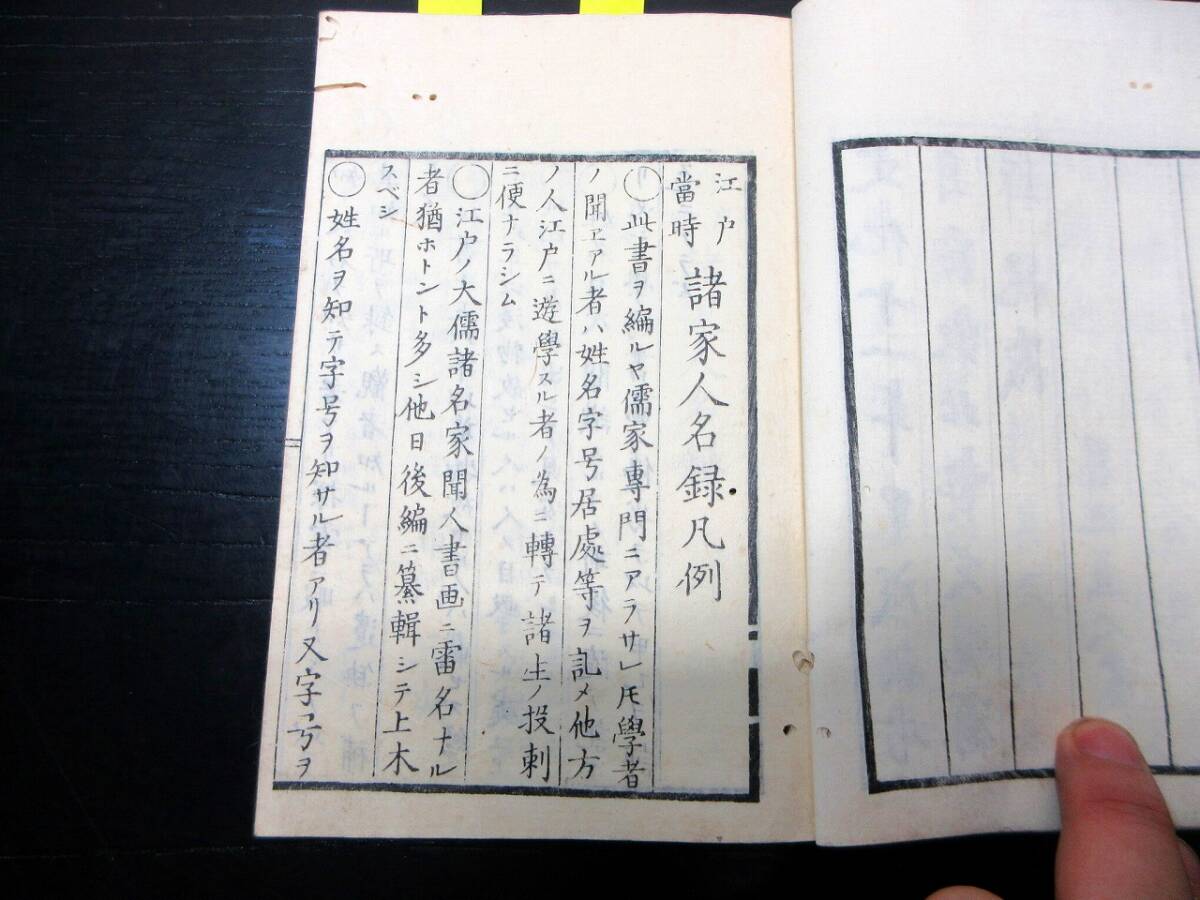 江戸當時 諸家人名録凡例
○此書ヲ編ルヤ儒家專門ニアラサレ𪜈學者
ノ聞ヱアル者ハ姓名字号居處等ヲ記メ他方
ノ人江戸ニ遊學スル者ノ為ニ轉テ諸生ノ投刺
ニ便ナラシム
○江戸ノ大儒諸名家聞人書画ニ雷名ナル
者猶ホトント多シ他日後編ニ纂輯シテ上木
スベシ
○姓名ヲ知テ字号ヲ知サル者アリ又字号ヲ